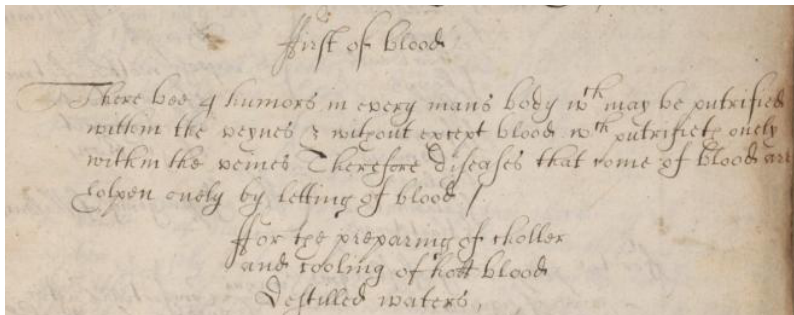 ffirst of blood
There bee 4 humors in every mans body wth may be putrified
within the veynes & without except blood wth putrifieth onely
within the veines Therefore diseases that come of blood are
holpen onely by letting of blood /
ffor the preparing of choller
and cooling of hott blood
Destilled waters,